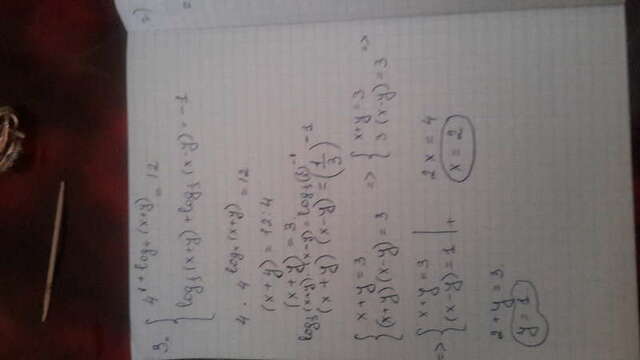 3. { 4^{1+log₄(x+y)} = 12
log₃(x+y)+log₃(x-y) = -1
4 · 4^{log₄(x+y)} = 12
(x+y) = 12:4
(x+y) = 3
(x+y) (x-y) = (1/3)^{-1}
{ x+y=3
(x+y)(x-y)=3
=> { x+y=3
3(x-y)=3 =>
=> { x+y=3
(x-y)=1 | +
2x=4
x=2
2+y=3
y=1